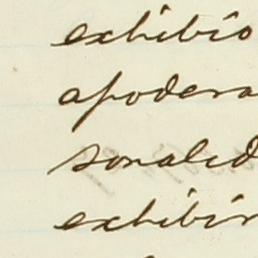 exhibio
apodera
sonalid
exhibir